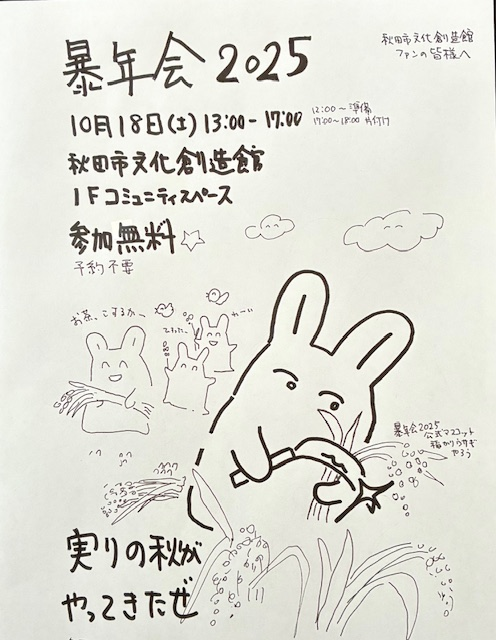 秋田市文化創造館
ファンの皆様へ
暴年会 2025
10月18日(土) 13:00-17:00
12:00〜 準備
17:00〜18:00 片付け
秋田市文化創造館
1Fコミュニティスペース
参加無料☆
予約不要
お茶、こするか〜
わーい
暴年会2025
公式マスコット
稲かりうさぎ
やろう
実りの秋が
やってきたぜ